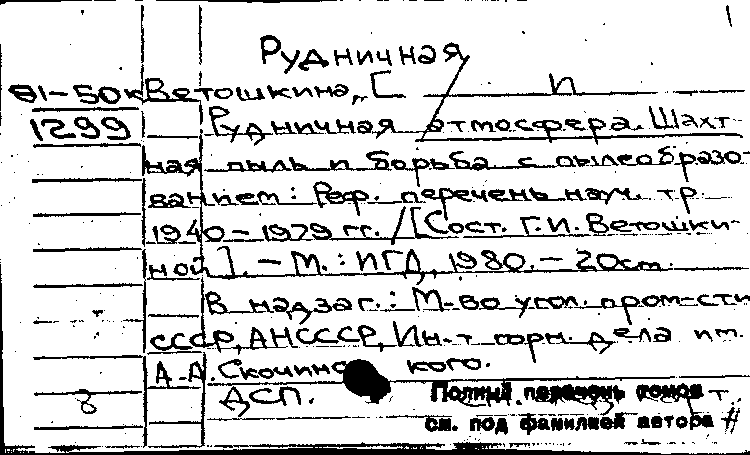 Рудничная
81-50к Ветошкина, [ п
1299 Рудничная атмосфера. Шахт
ная пыль и борьба с пылеобразо-
ванием: Реф. перечень науч. тр.
1940-1979 гг. / [Сост. Г.И. Ветошки-
ной]. - М.: ИГД, 1980. - 20 см.
В надзаг.: М-во угол. пром-сти
СССР, АНСССР, Ин-т горн. дела им.
А.А. Скочинс кого.
ДСП.
8
Полный перечень томов т.
см. под фамилией автора #